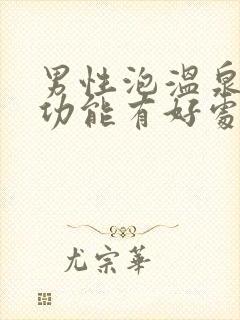 男性泡温泉
功能有好处
尤宗华